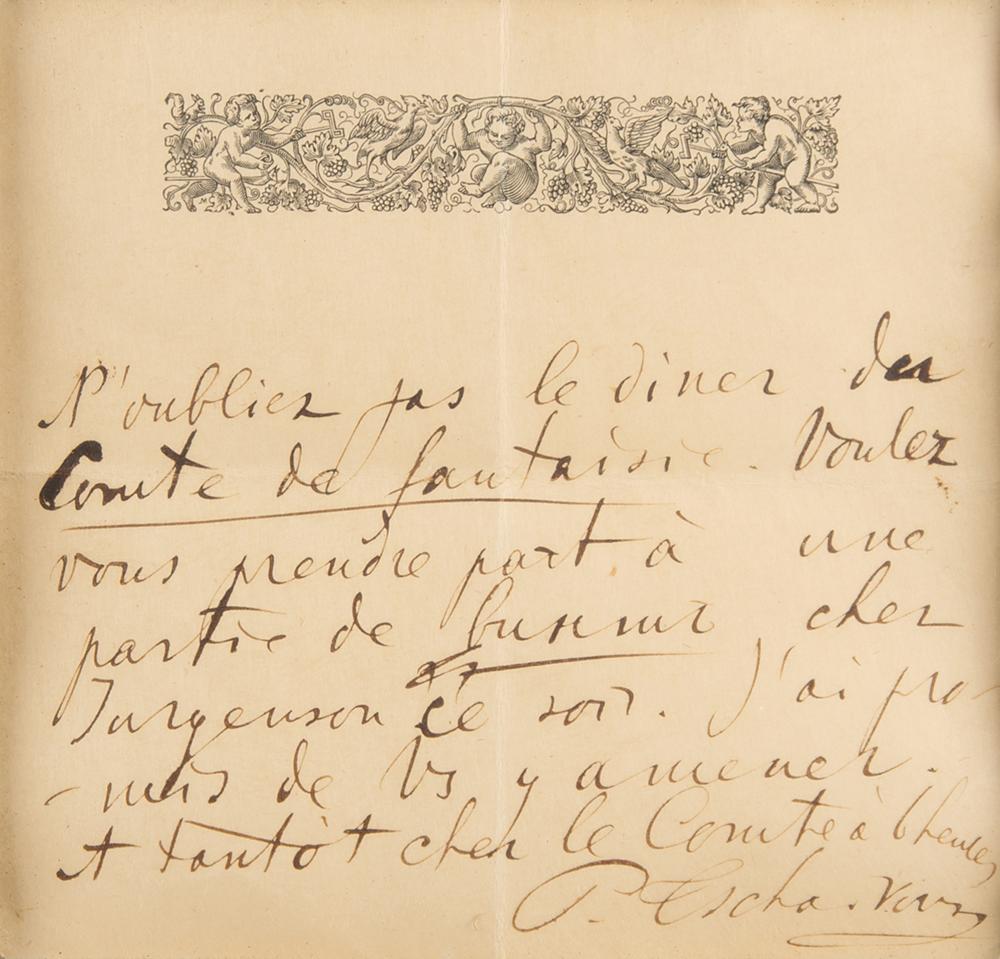 N'oubliez pas le diner du
Comte de fantaisie. Voulez
vous prendre part à une
partie de , chez
Jurgenson ce soir. J'ai pro-
-mis de Vs y amener.
A tantôt chez le Comte à 6 heures
P. Tscha